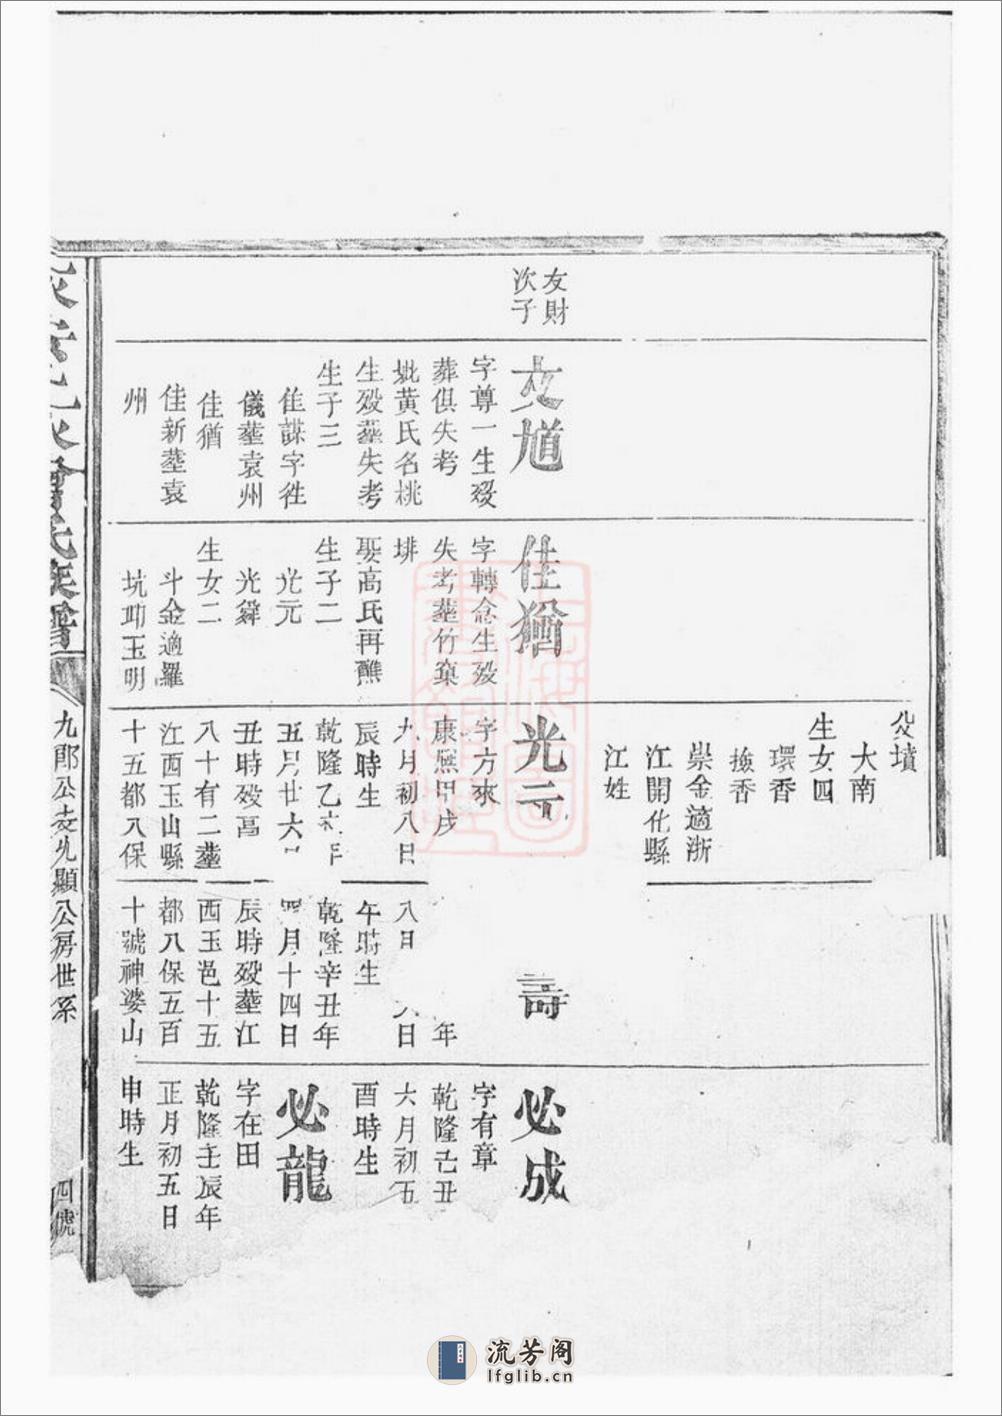 友財
次子
文馗
字尊一生殁
葬俱失考
妣黄氏名桃
生殁塟失考
生子三
佳謀字徃
儀塟袁州
佳猶
佳新塟袁
州
佳猶
字轉念生殁
失考塟竹窠
排
娶高氏再醮
生子二
光元
光舜
生女二
斗金適羅
坑
玉明
公墳
大南
生女四
環香
撿香
崇金適浙
江開化縣
江姓
光元
字方來
康熈甲戌
九月初八日
辰時生
乾隆乙未年
五月廿六日
丑時殁亯
八十有二塟
江西玉山縣
十五都八保
壽
年
八月
日
午時生
乾隆辛丑年
月十四日
辰時殁塟江
西玉邑十五
都八保五百
十號神婆山
必成
字有章
乾隆
丑
六月初五
酉時生
必龍
字在田
乾隆壬辰年
正月初五日
申時生
氏族譜
九郎公支允顯公房世系
四號
流芳阁
lfglib.cn